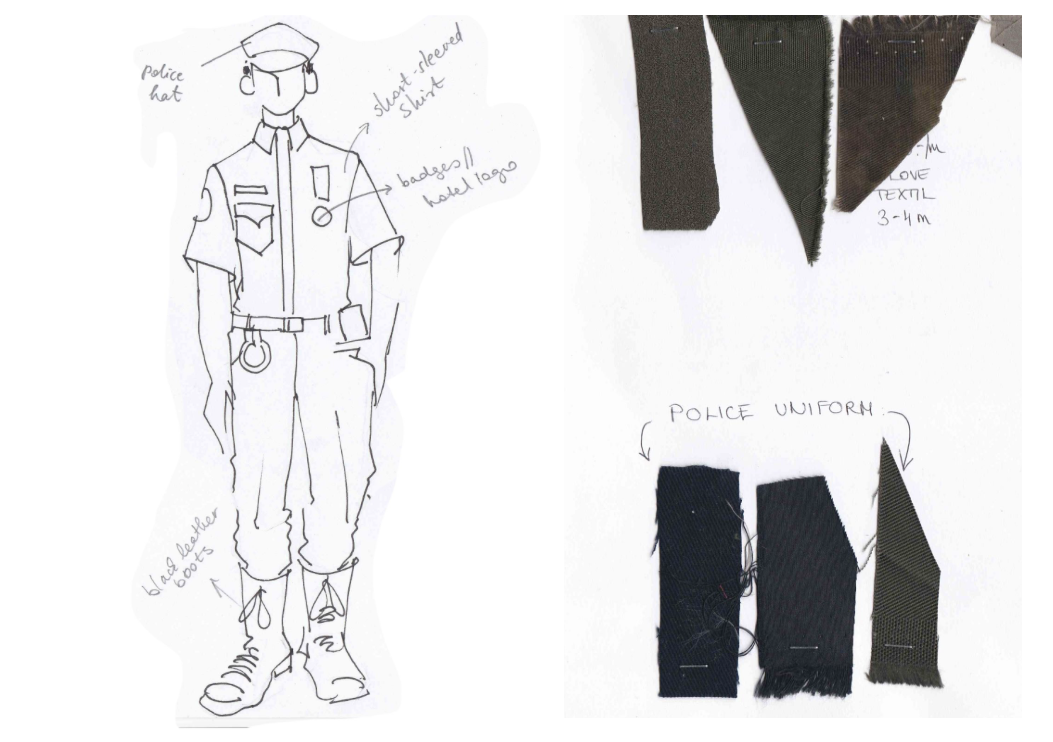 Police
hat
short-sleeved
shirt
badges//
hotel logo
black leather
boots
LOVE
TEXTIL
3-4m
POLICE UNIFORM